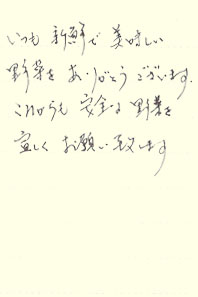 いつも 新鮮で 美味しい
野菜を ありがとう ございます.
これからも 安全な 野菜を
宜しく お願い致します